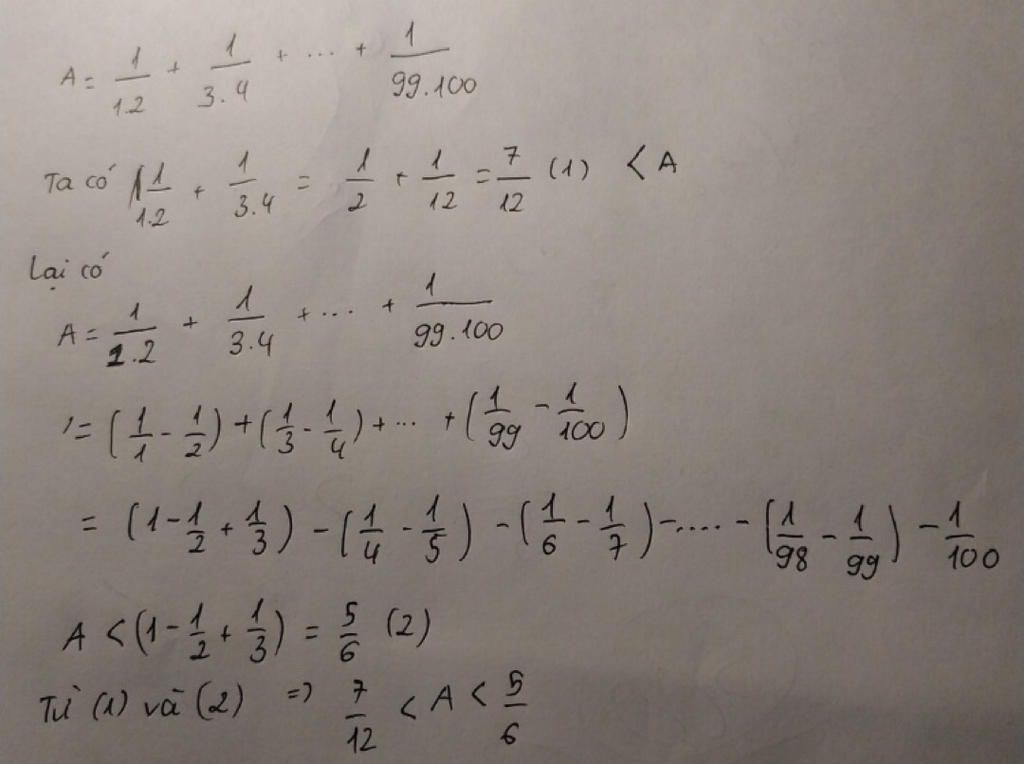 A = 1/1.2 + 1/3.4 + ... + 1/99.100
Ta có 1/1.2 + 1/3.4 = 1/2 + 1/12 = 7/12 (1) < A
Lại có
A = 1/1.2 + 1/3.4 + ... + 1/99.100
= (1/1 - 1/2) + (1/3 - 1/4) + ... + (1/99 - 1/100)
= (1 - 1/2 + 1/3) - (1/4 - 1/5) - (1/6 - 1/7) - .... - (1/98 - 1/99) - 1/100
A < (1 - 1/2 + 1/3) = 5/6 (2)
Từ (1) và (2) => 7/12 < A < 5/6